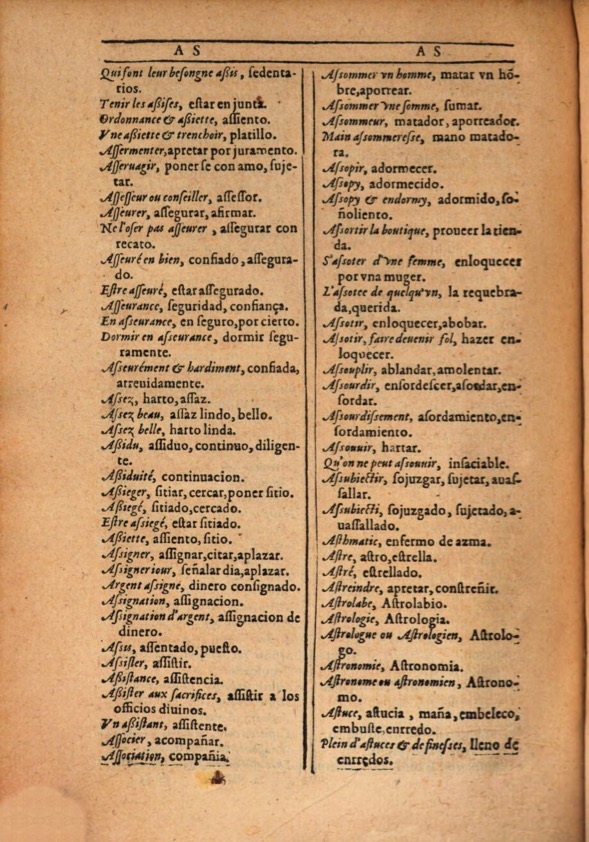 A S
Qui ſont leur beſongne aßis, ſedenta-
rios.
Tenir les aßiſes, eſtar en junta.
Ordonnance & aßiette, aſſiento.
Vne aßiette & trenchoir, platillo.
Aſſermenter, apretar por juramento.
Aſſeruagir, poner ſe con amo, ſuje-
tar.
Aſſeſſeur ou conſeiller, aſſeſſor.
Aſſeurer, aſſegurar, afirmar.
Ne l'oſer pas aſſeurer, aſſegurar con
recato.
Aſſeuré en bien, confiado, aſſegura-
do.
Eſtre aſſeuré, eſtar aſſegurado.
Aſſeurance, ſeguridad, confiança.
En aſseurance, en ſeguro, por cierto.
Dormir en aſseurance, dormir ſegu-
ramente.
Aſseurément & hardiment, confiada,
atreuidamente.
Aſsez, harto, aſſaz.
Aſsez beau, aſſaz lindo, bello.
Aſsez belle, harto linda.
Aßidu, aſſiduo, continuo, diligen-
te.
Aßiduité, continuacion.
Aßieger, ſitiar, cercar, poner ſitio.
Aßiegé, ſitiado, cercado.
Eſtre aſsiegé, eſtar ſitiado.
Aßiette, aſſiento, ſitio.
Aſsigner, aſſignar, citar, aplazar.
Aſsigner iour, ſeñalar dia, aplazar.
Argent aſsigné, dinero conſignado.
Aſsignation, aſſignacion.
Aſsignation d'argent, aſſignacion de
dinero.
Aſsis, aſſentado, pueſto.
Aſsiſter, aſſiſtir.
Aßiſtance, aſſiſtencia.
Aßiſter aux ſacrifices, aſſiſtir a los
officios diuinos.
Vn aßiſtant, aſſiſtente.
Aſſocier, acompañar.
Aſſociation, compañia.
A S
Aſsommer vn homme, matar vn hõ-
bre, aporrear.
Aſsommer vne ſomme, ſumar.
Aſsommeur, matador, aporreador.
Main aſsommereſse, mano matado-
ra.
Aſsopir, adormecer.
Aſsopy, adormecido.
Aſsopy & endormy, adormido, ſo-
ñoliento.
Aſsortir la boutique, proueer la tien-
da.
S'aſsoter d'vne femme, enloquecer
por vna muger.
L'aſsotee de quelqu'vn, la requebra-
da, querida.
Aſsotir, enloquecer, abobar.
Aſsotir, faire deuenir fol, hazer en-
loquecer.
Aſsouplir, ablandar, amolentar.
Aſsourdir, enſordeſcer, aſordar, en-
ſordar.
Aſsourdiſsement, aſordamiento, en-
ſordamiento.
Aſsouuir, hartar.
Qu'on ne peut aſsouuir, inſaciable.
Aſsubiectir, ſojuzgar, ſujetar, auaſ-
ſallar.
Aſsubiecti, ſojuzgado, ſujetado, a-
uaſſallado.
Aſthmatic, enfermo de azma.
Aſtre, aſtro, eſtrella.
Aſtré, eſtrellado.
Aſtreindre, apretar, conſtreñir.
Aſtrolabe, Aſtrolabio.
Aſtrologie, Aſtrologia.
Aſtrologue ou Aſtrologien, Aſtrolo-
go.
Aſtronomie, Aſtronomia.
Aſtronome ou aſtronomien, Aſtrono-
mo.
Aſtuce, aſtucia, maña, embeleco,
embuſte, enredo.
Plein d'aſtuces & de fineſses, lleno de
enrredos.